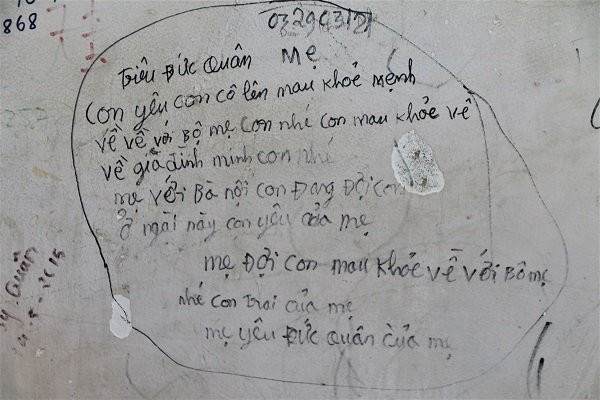 868
Triêu Đức Quân Mẹ
Con yêu con cô lên mau khoẻ mệnh
về về với Bộ mẹ con nhé con mau khỏe về
về giađình minh con nhé
mẹ với Bà nội con Đang Đợi con
ở mại này con yêu của mẹ
mẹ Đợi con mau khỏe về với Bômẹ
nhé con Trai của mẹ
mẹ yêu Đức Quân của mẹ